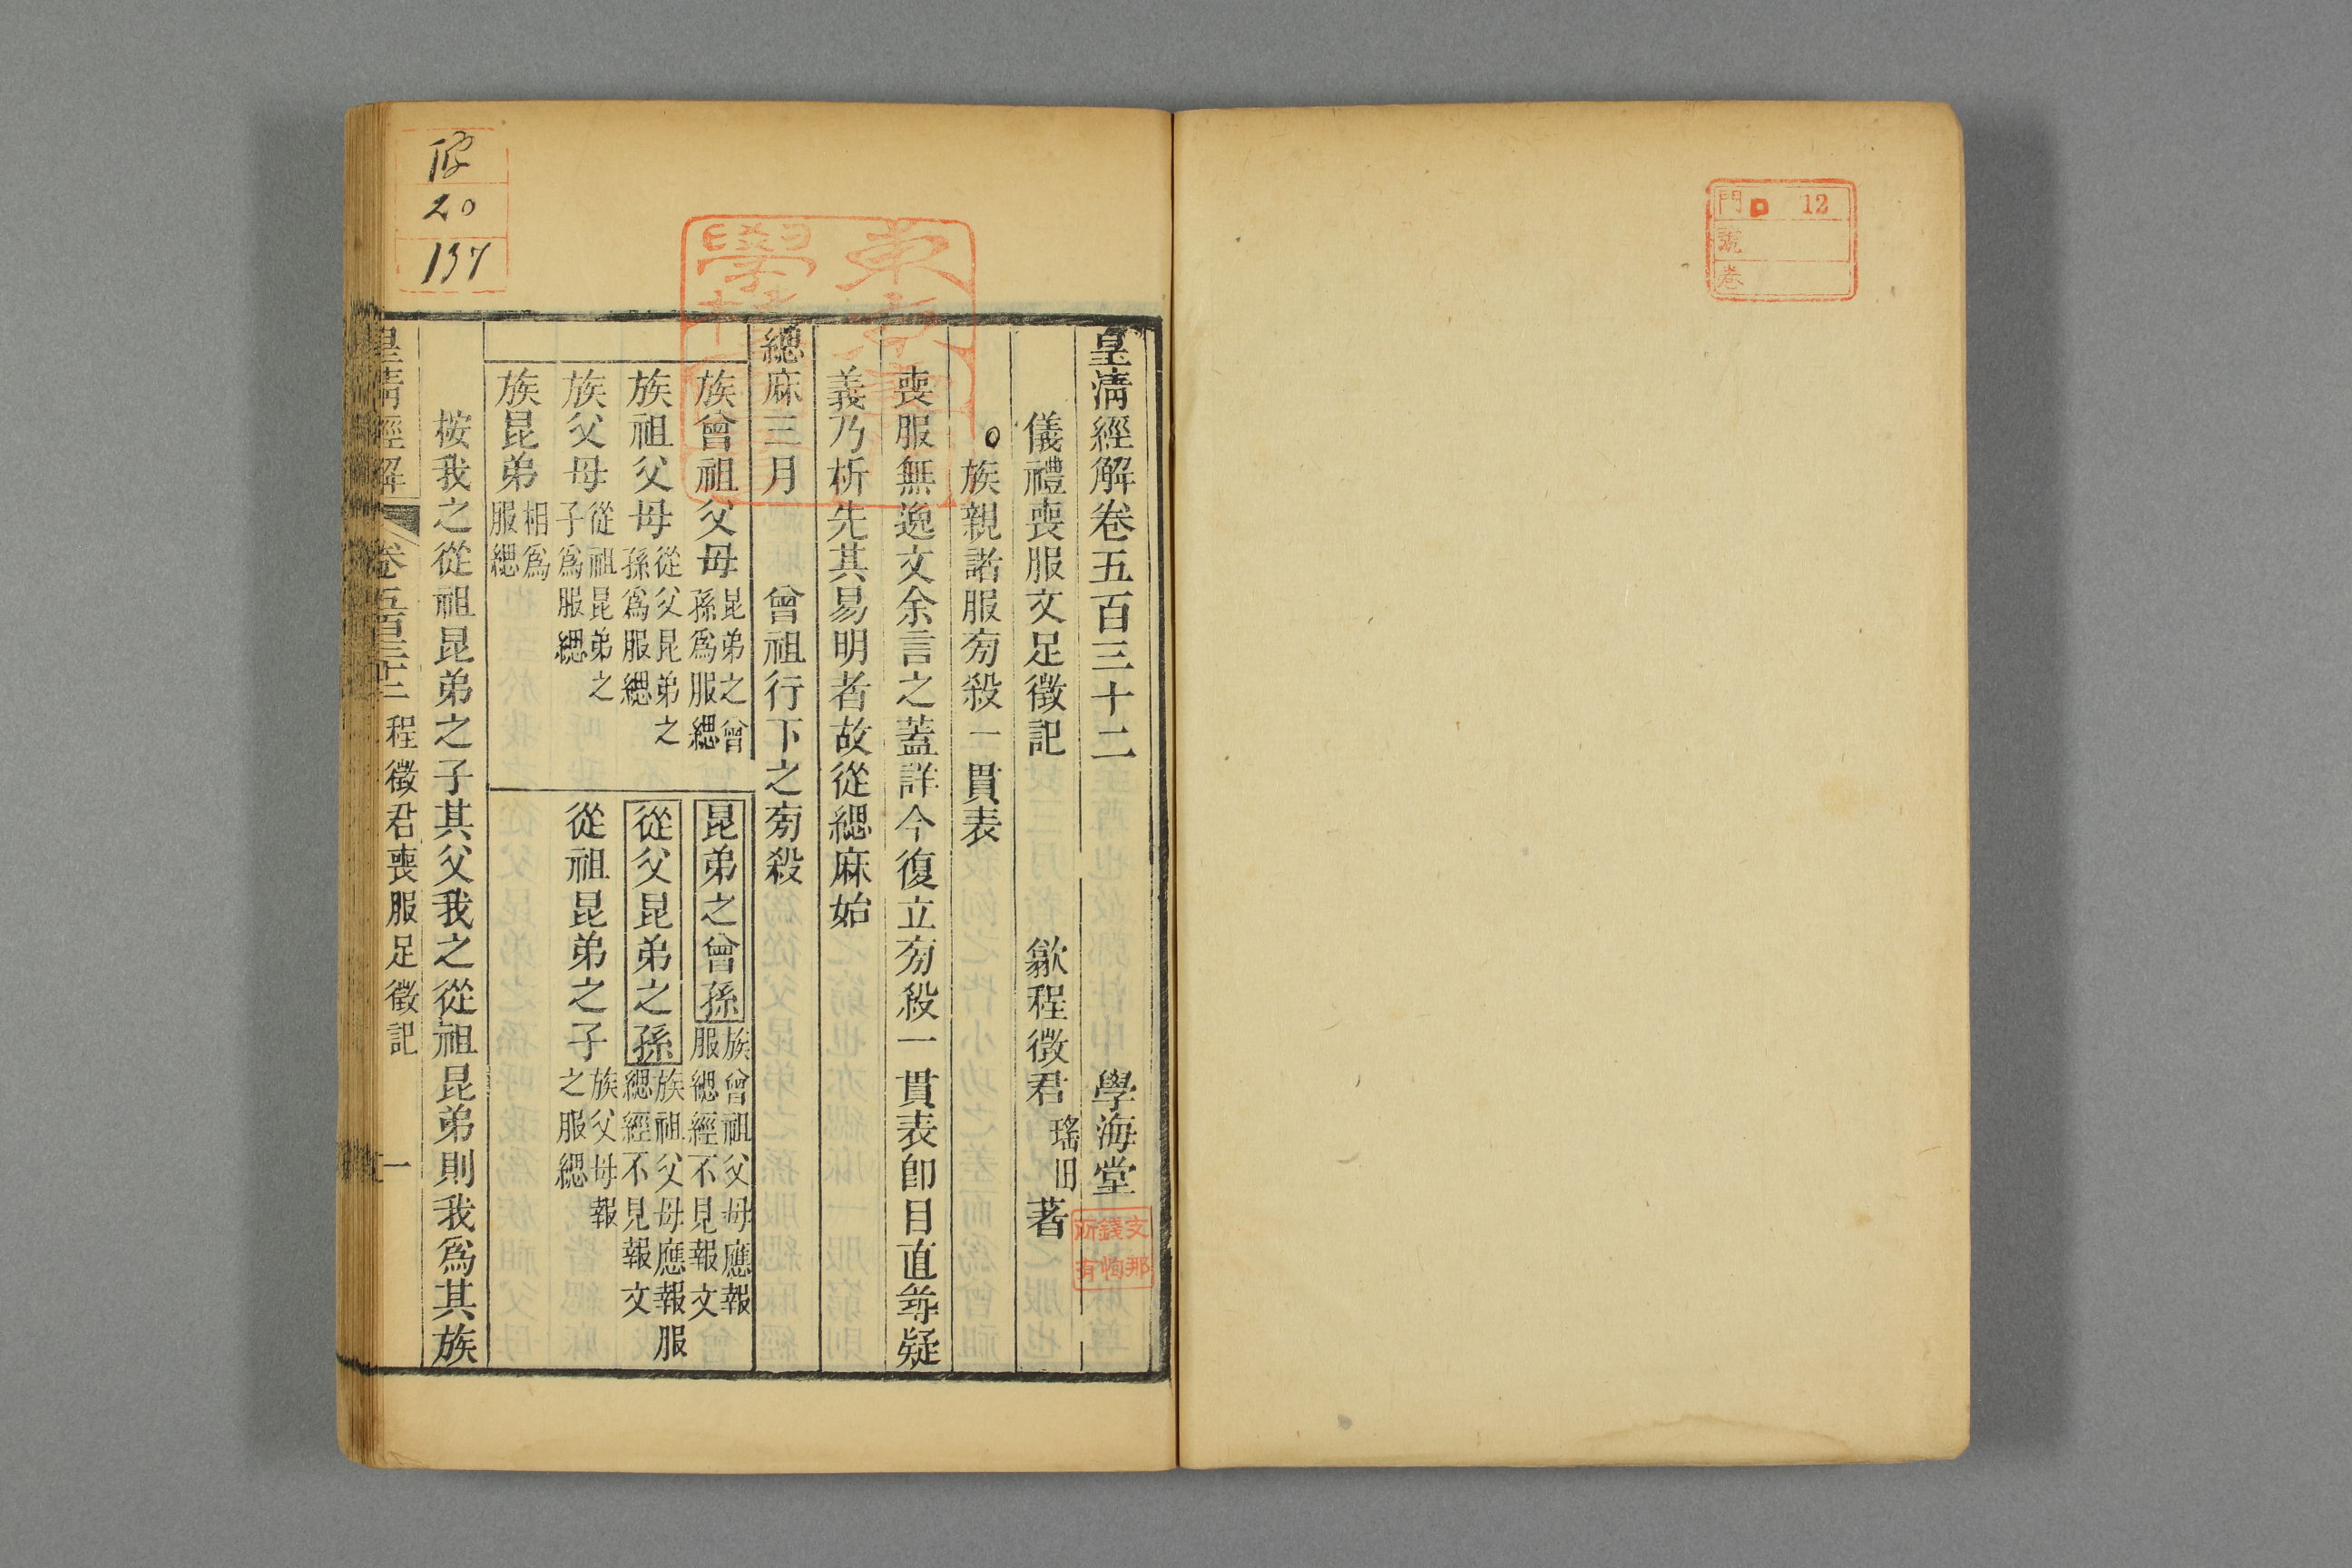 門 12
號
卷
皇清經解卷五百三十二 學海堂
儀禮喪服文足徵記 歙程徵君瑤田著
族親諸服旁殺一貫表
喪服無逸文余言之葢詳今復立旁殺一貫表卽目直尋疑
義乃析先其易明者故從緦麻始
緦麻三月 曾祖行下之旁殺
族曾祖父母 昆弟之曾孫為服緦
昆弟之曾孫 族曾祖父母應報服緦經不見報文
族祖父母 從父昆弟之孫為服緦
從父昆弟之孫 族祖父母應報服緦經不見報文
族父母 從祖昆弟之子為服緦
從祖昆弟之子 族父母報之服緦
族昆弟 相為服緦
按我之從祖昆弟之子其父我之從祖昆弟則我為其族
皇清經解 卷五百三十二 程徵君喪服足徵記 一
20
137